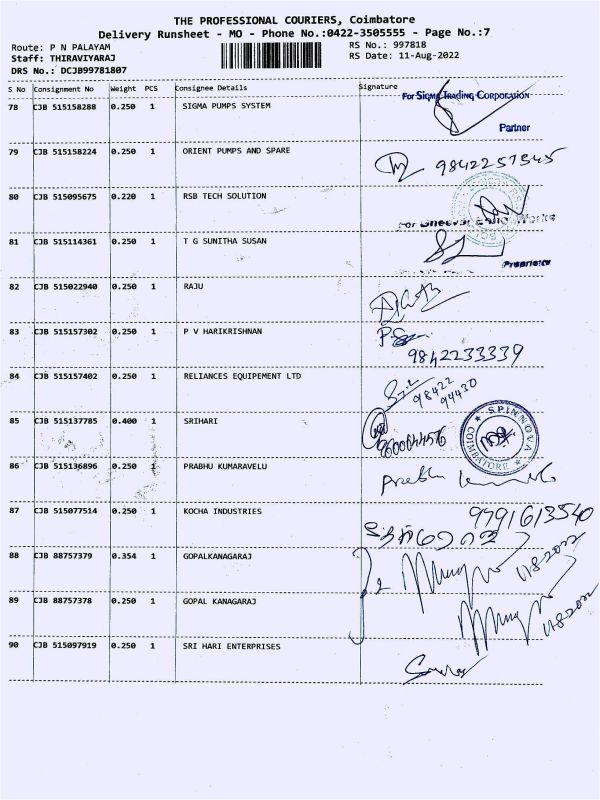 THE PROFESSIONAL COURIERS, Coimbatore
Delivery Runsheet - MO - Phone No.:0422-3505555 - Page No.:7
Route: P N PALAYAM
RS No.: 997818
Staff: THIRAVIYARAJ
RS Date: 11-Aug-2022
DRS No.: DCJB99781807
S No Consignment No Weight PCS Consignee Details Signature
For Sigma Trading Corporation
78 CJB 515158288 0.250 1 SIGMA PUMPS SYSTEM
Partner
79 CJB 515158224 0.250 1 ORIENT PUMPS AND SPARE
9842257545
80 CJB 515095675 0.220 1 RSB TECH SOLUTION
81 CJB 515114361 0.250 1 T G SUNITHA SUSAN
Proprietor
82 CJB 515022940 0.250 1 RAJU
83 CJB 515157302 0.250 1 P V HARIKRISHNAN
9842233339
84 CJB 515157402 0.250 1 RELIANCES EQUIPEMENT LTD
98422
94430
85 CJB 515137785 0.400 1 SRIHARI
SPINNOVA
COIMBATORE
86 CJB 515136896 0.250 1 PRABHU KUMARAVELU
Prabhu
87 CJB 515077514 0.250 1 KOCHA INDUSTRIES
9791613540
88 CJB 88757379 0.354 1 GOPALKANAGARAJ
1182022
89 CJB 88757378 0.250 1 GOPAL KANAGARAJ
1182022
90 CJB 515097919 0.250 1 SRI HARI ENTERPRISES